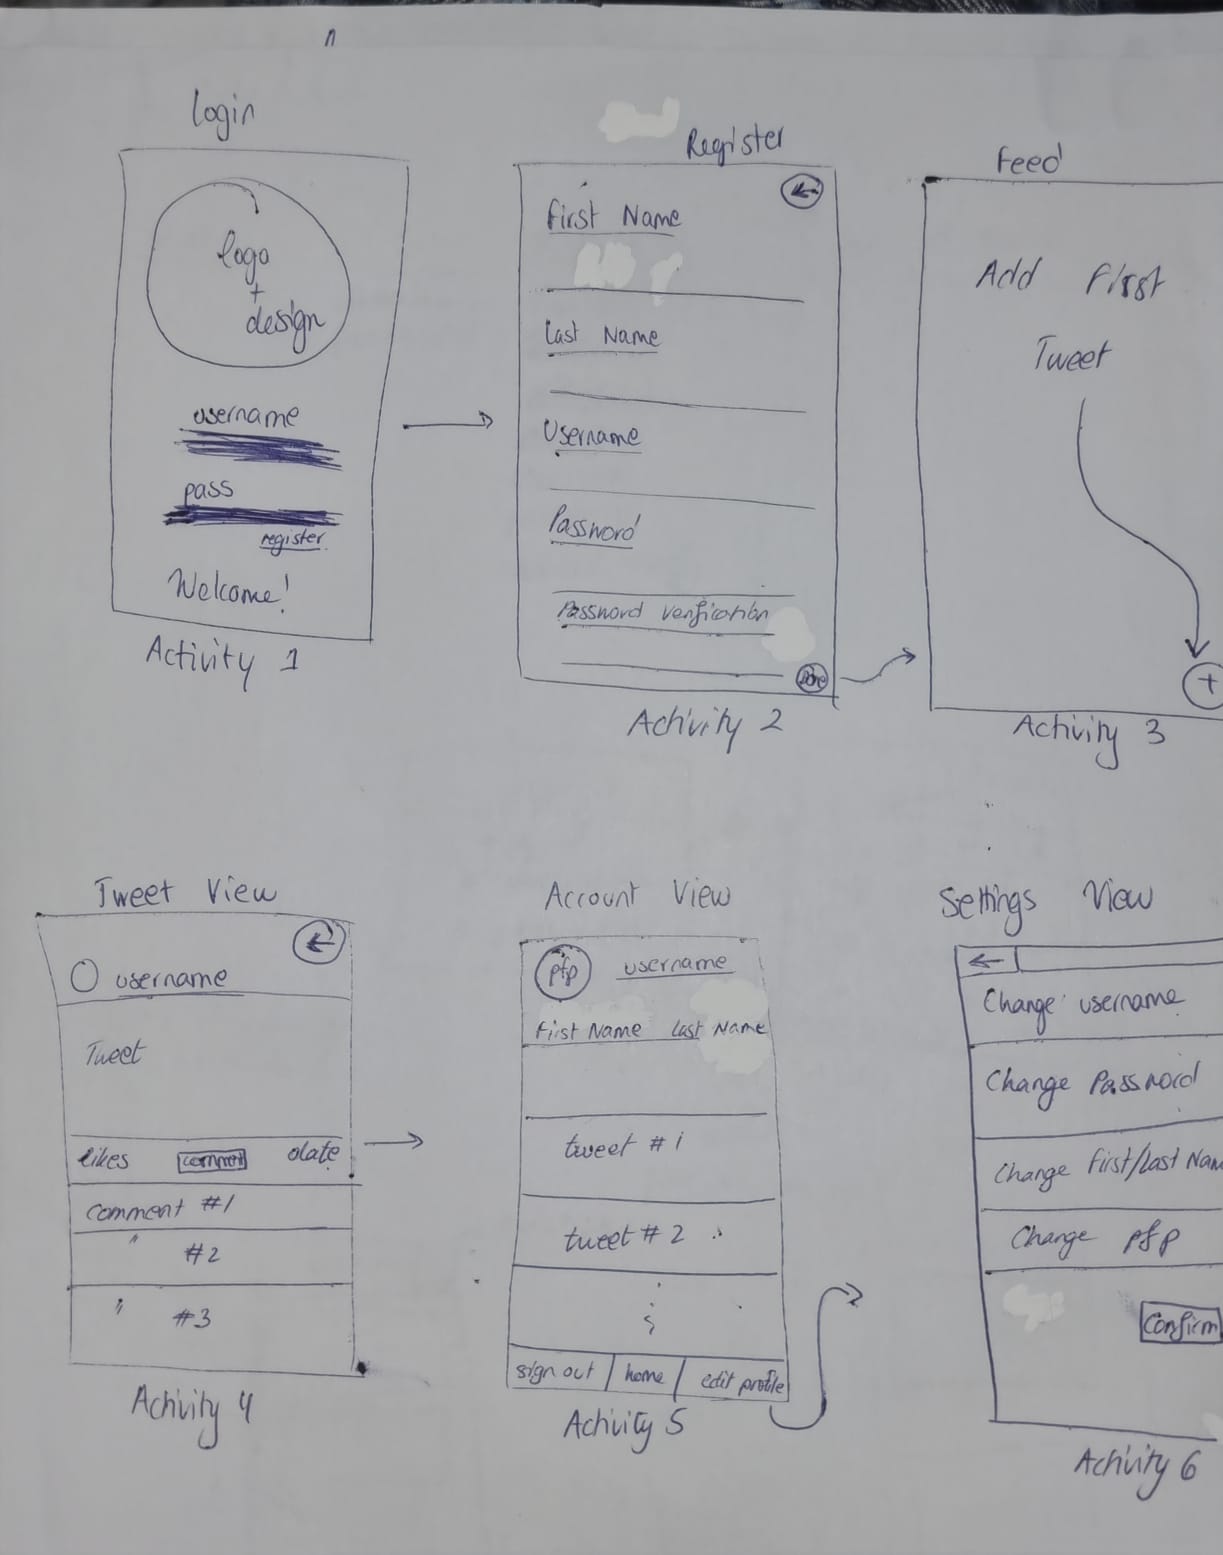 Login
logo
+
design
username
pass
register
Welcome!
Activity 1
Register
First Name
Last Name
Username
Password
Password Verification
Done
Activity 2
Feed
Add First
Tweet
+
Activity 3
Tweet View
username
Tweet
likes comment date
comment #1
" #2
" #3
Activity 4
Account View
pfp username
First Name Last Name
tweet #1
tweet #2
sign out home edit profile
Activity 5
Settings View
Change username
Change Password
Change First/Last Nam
Change pfp
Confirm
Activity 6